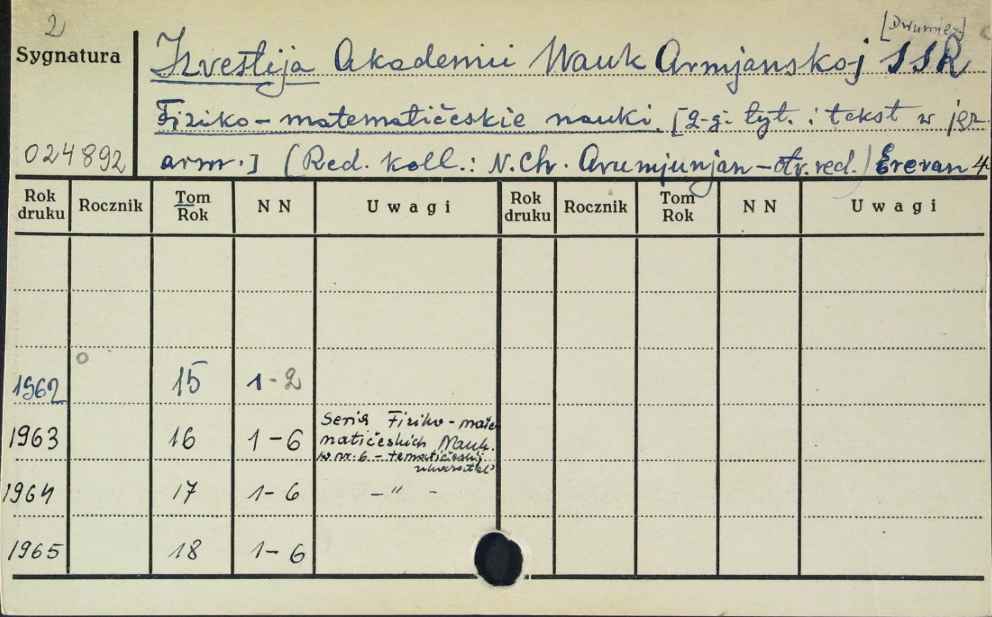 2
[Dwumies.]
Sygnatura
Izvestija Akademii Nauk Armjanskoj SSR
Fiziko-matematičeskie nauki. [2-gi tyt. i tekst w jęz.
024892
arm.] (Red. koll.: N. Ch. Arumjunjan - otv. red.) Erevan 4°
Rok druku Rocznik Tom Rok N N Uwagi Rok druku Rocznik Tom Rok N N Uwagi
1962 15 1-2
1963 16 1-6 Serija Fiziko-mate
matičeskich Nauk.
w nr. 6 - tematičeskij
ukazatel'
1964 17 1-6 -"-
1965 18 1-6